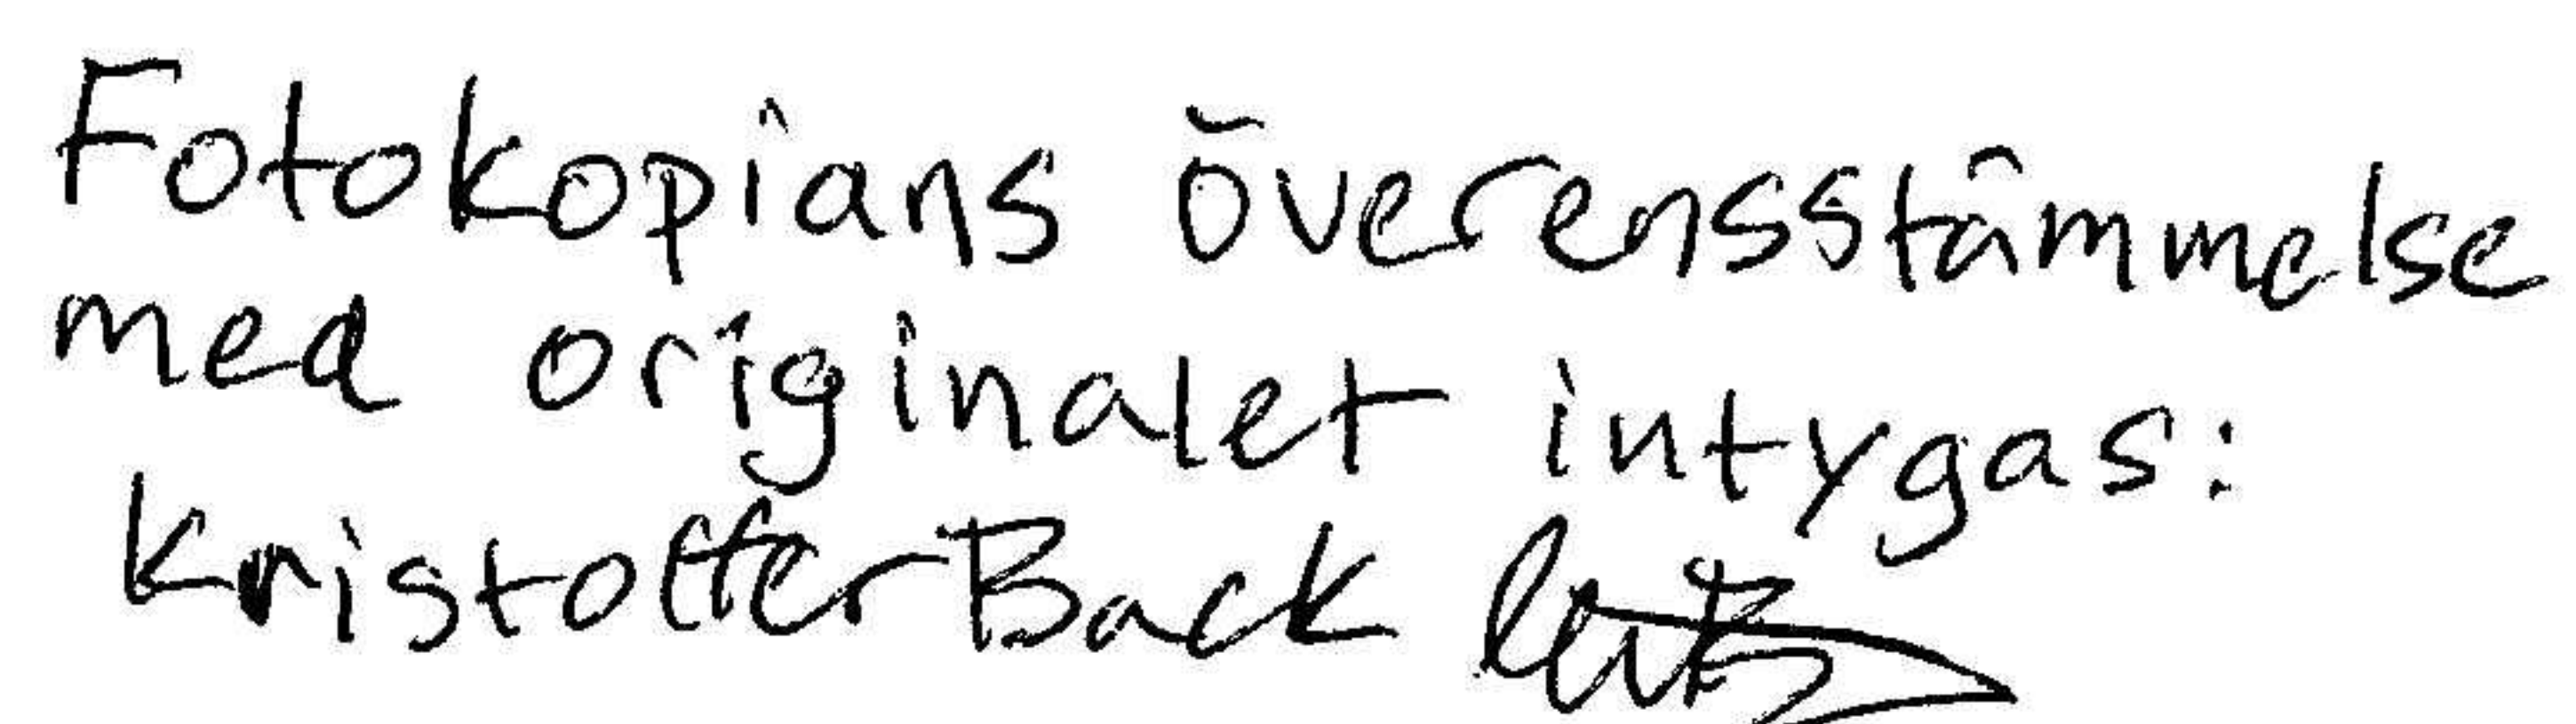 Fotokopians överensstämmelse
med originalet intygas:
Kristoffer Back